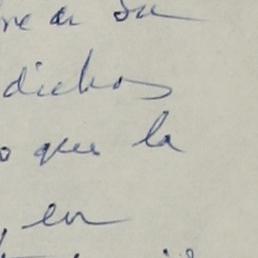 a su
dichos
que la
, en